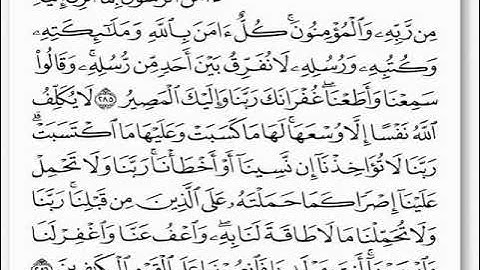 ءَامَنَ ٱلرَّسُولُ بِمَآ أُنزِلَ إِلَيْهِ
مِن رَّبِّهِۦ وَٱلْمُؤْمِنُونَ ۚ كُلٌّ ءَامَنَ بِٱللَّهِ وَمَلَـٰٓئِكَتِهِۦ
وَكُتُبِهِۦ وَرُسُلِهِۦ لَا نُفَرِّقُ بَيْنَ أَحَدٍ مِّن رُّسُلِهِۦ ۚ وَقَالُوا۟
سَمِعْنَا وَأَطَعْنَا ۖ غُفْرَانَكَ رَبَّنَا وَإِلَيْكَ ٱلْمَصِيرُ ٢٨٥ لَا يُكَلِّفُ
ٱللَّهُ نَفْسًا إِلَّا وُسْعَهَا ۚ لَهَا مَا كَسَبَتْ وَعَلَيْهَا مَا ٱكْتَسَبَتْ ۗ
رَبَّنَا لَا تُؤَاخِذْنَآ إِن نَّسِينَآ أَوْ أَخْطَأْنَا ۚ رَبَّنَا وَلَا تَحْمِلْ
عَلَيْنَآ إِصْرًا كَمَا حَمَلْتَهُۥ عَلَى ٱلَّذِينَ مِن قَبْلِنَا ۚ رَبَّنَا
وَلَا تُحَمِّلْنَا مَا لَا طَاقَةَ لَنَا بِهِۦ ۖ وَٱعْفُ عَنَّا وَٱغْفِرْ لَنَا
وَٱرْحَمْنَآ ۚ أَنتَ مَوْلَىٰنَا فَٱنصُرْنَا عَلَى ٱلْقَوْمِ ٱلْكَـٰفِرِينَ ٢٨٦